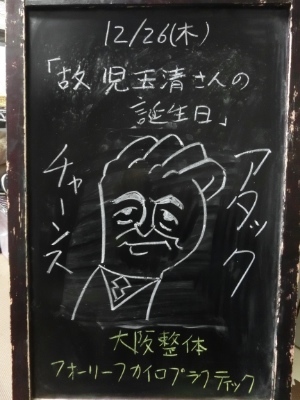 12/26(木)
「故 児玉清さんの
誕生日」
アタック
チャーンス
大阪整体
フォーリーフカイロプラクティック